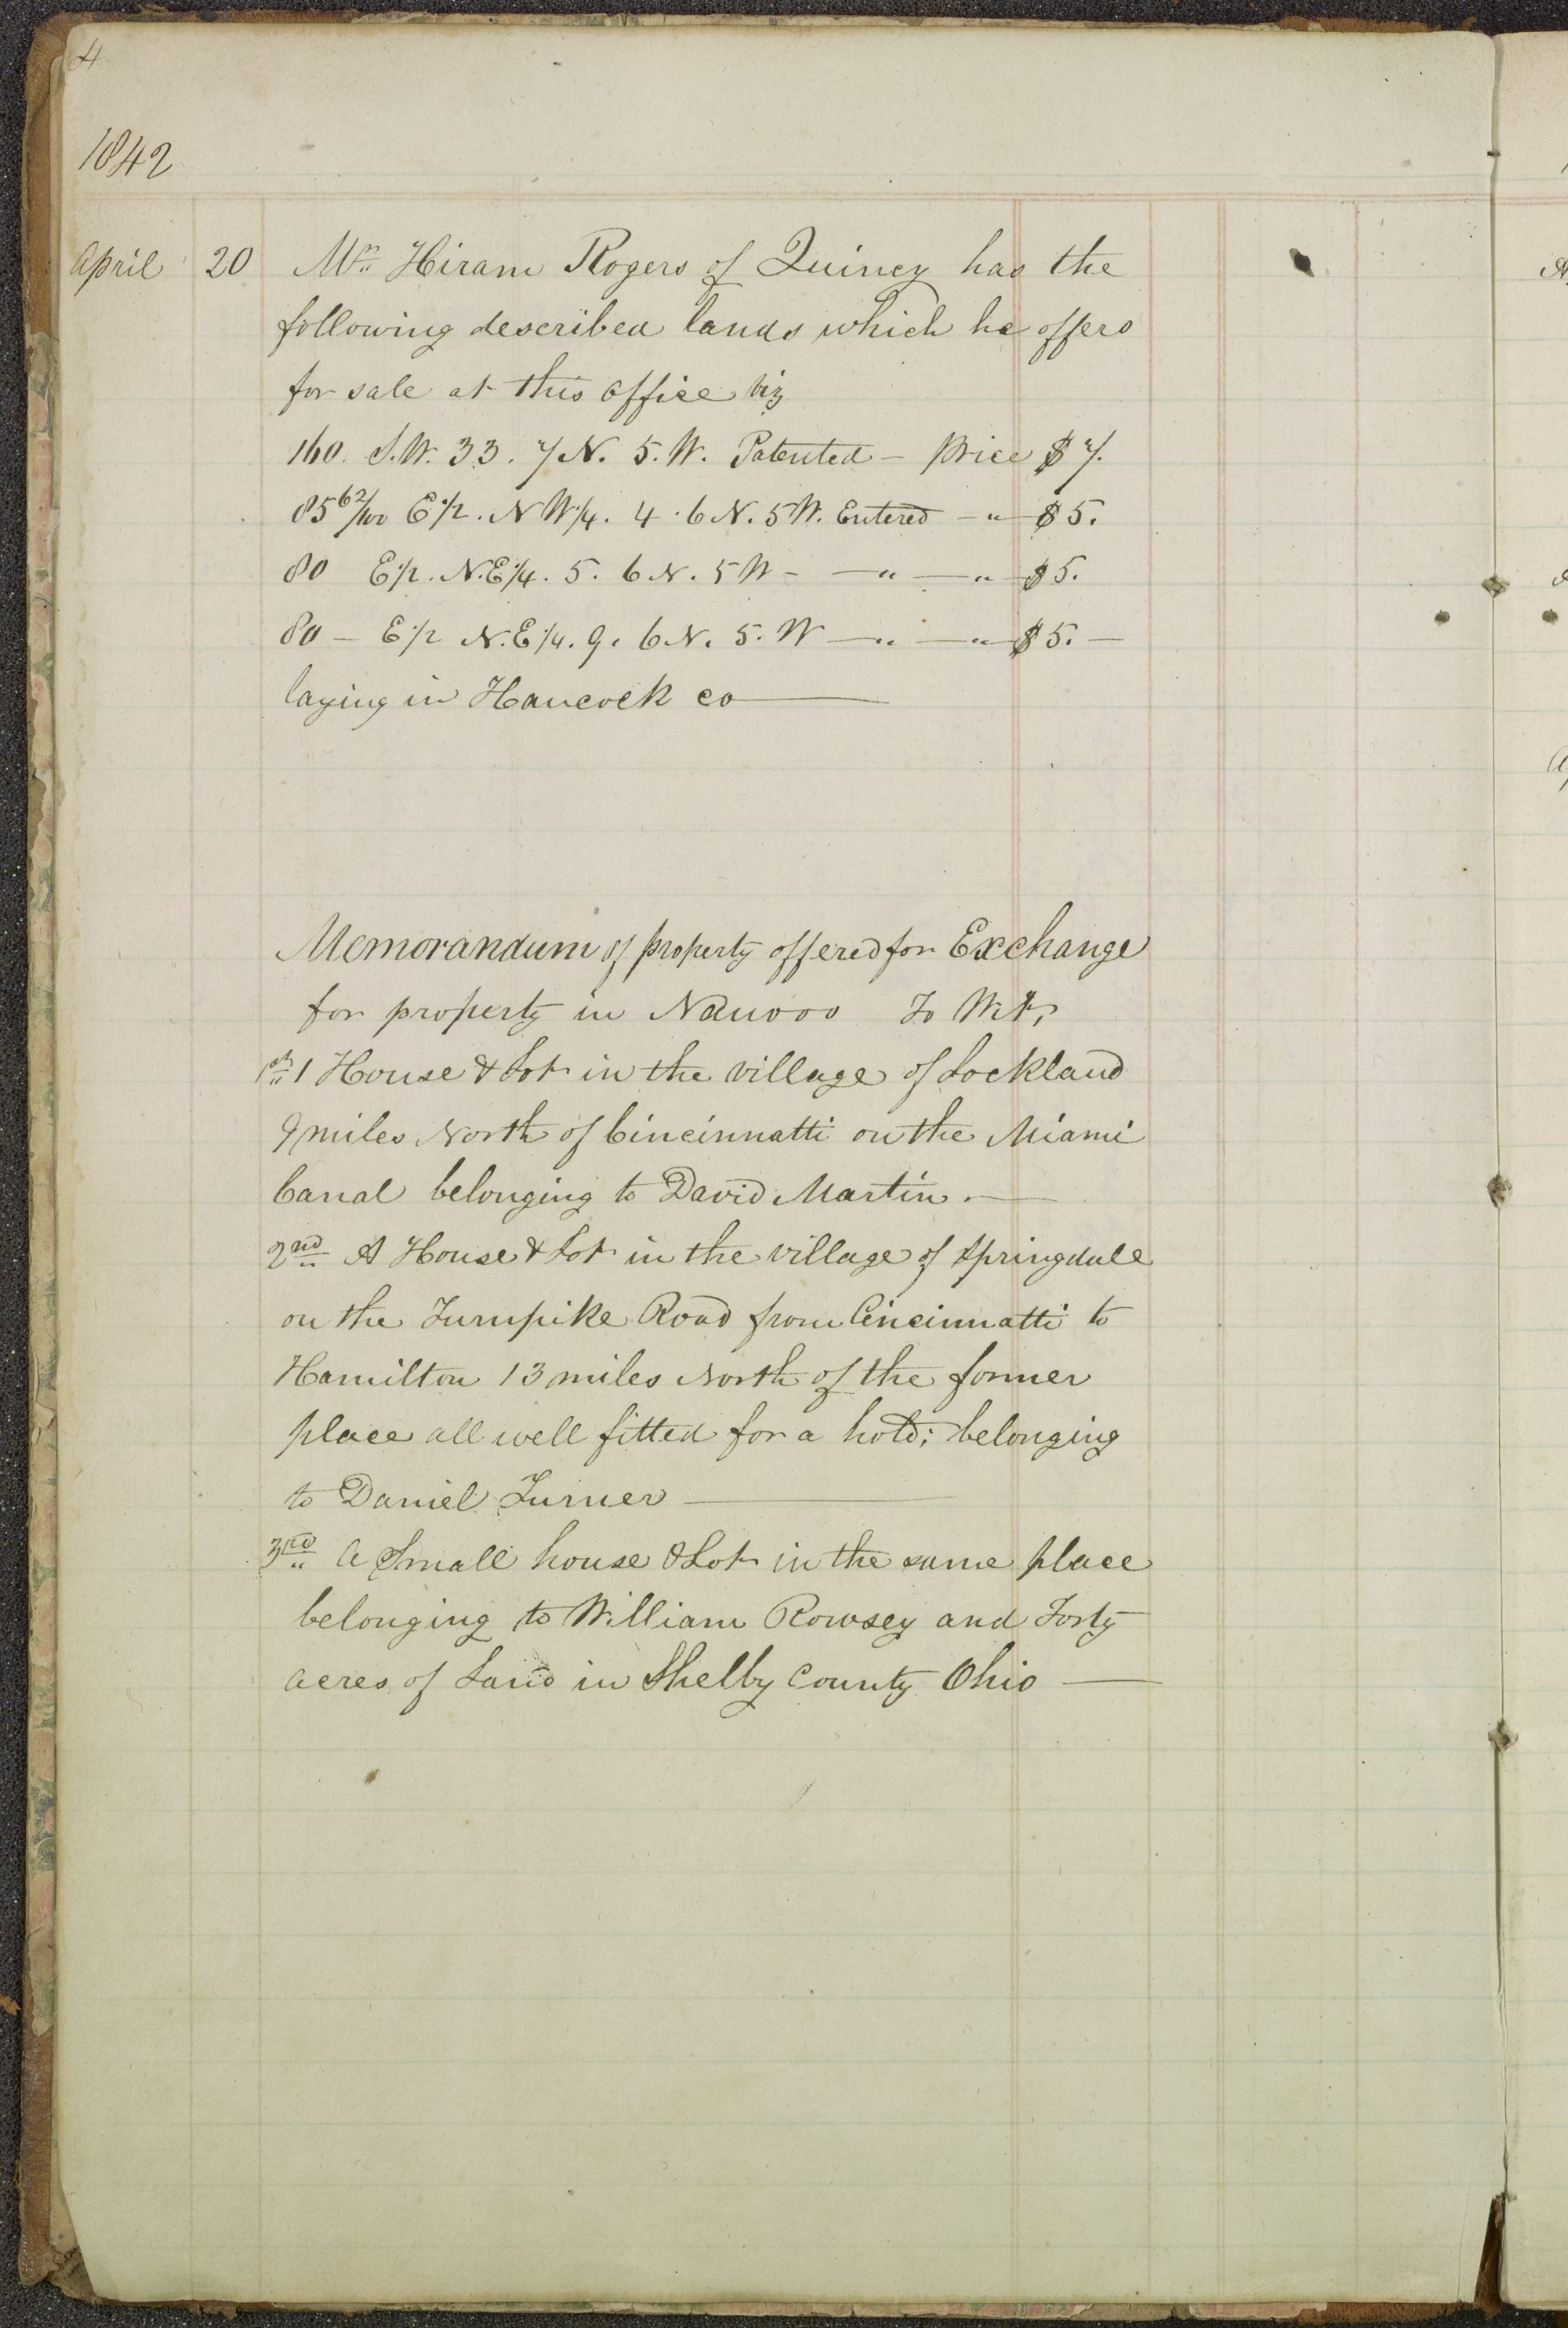 4
1842
April 20 Mr. Hiram Rogers of Quincy has the
following described lands which he offers
for sale at this office viz
160. S.W. 33. 7 N. 5. W. Patented – price $ 7.
85 62/100 E 1/2. N W 1/4. 4. 6 N. 5 W. Entered – " – $ 5.
80 E 1/2. N.E 1/4. 5. 6 N. 5 W – – " – " – $ 5.
80 – E 1/2 N.E 1/4. 9. 6 N. 5. W – " – " – $ 5. –
laying in Hancock co —
Memorandum of property offered for Exchange
for property in Nauvoo To Wit,
1st 1 House & Lot in the village of Lockland
9 miles North of Cincinnatti on the Miami
Canal belonging to David Martin. —
2nd A House & Lot in the village of Springdale
on the Turnpike Road from Cincinnatti to
Hamilton 13 miles North of the former
place all well fitted for a hotel; belonging
to Daniel Turner —
3rd A Small house & Lot in the same place
belonging to William Rowsey and Forty
acres of Land in Shelby County Ohio —